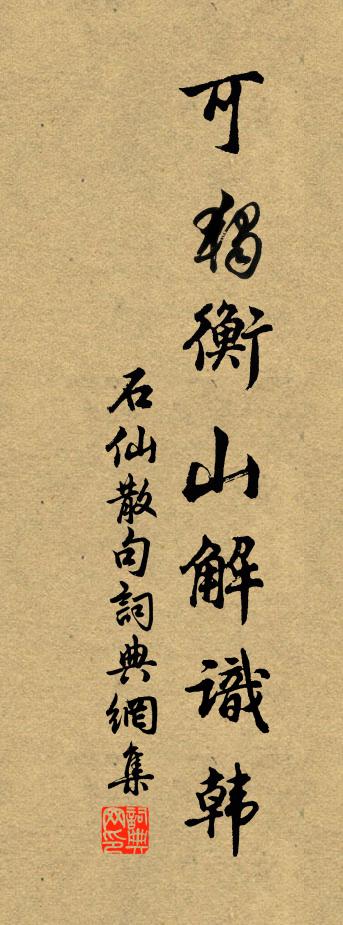 可独衡山解識韩
石仙散句詞典網集
詞典网印